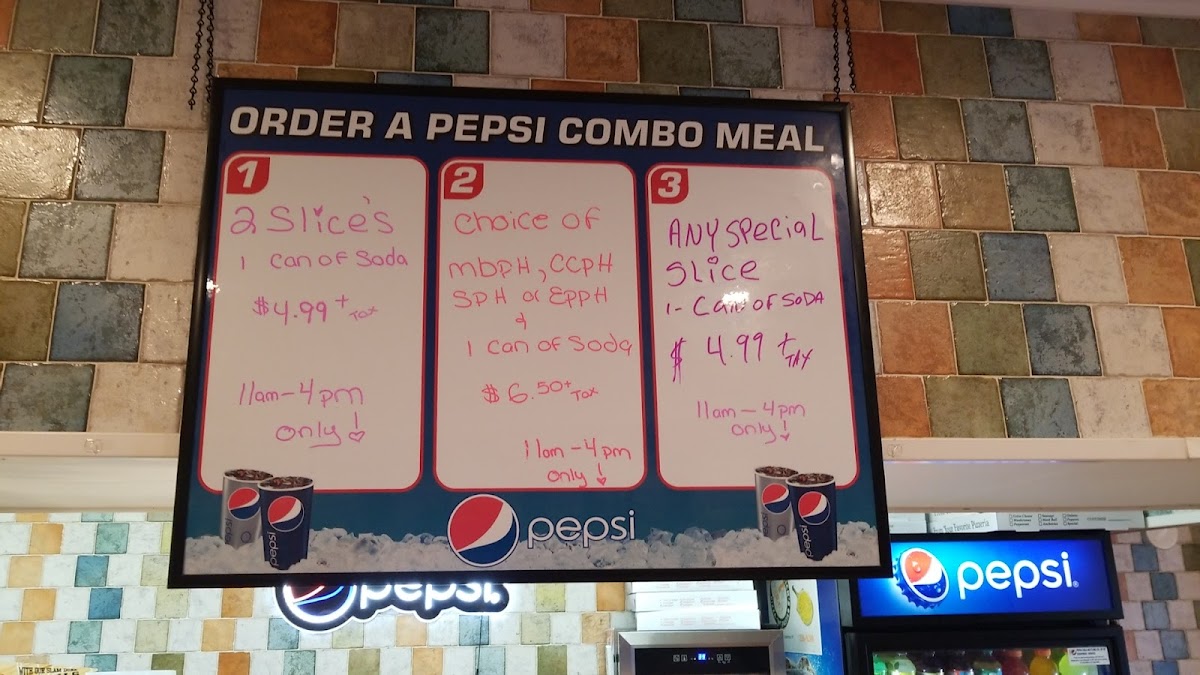 ORDER A PEPSI COMBO MEAL
1
2 Slice's
1 can of Soda
$4.99 + Tax
11am - 4 pm
only!
2
Choice of
MBPH, CCPH
SPH or EPPH
&
1 can of Soda
$6.50 + Tax
11am - 4pm
only!
3
ANY SPECIAL
SLICE
1 - Can OF SODA
$ 4.99 + TAX
11am - 4pm
only!
pepsi
pepsi
pepsi
pepsi
pepsi
Your Favorite Pizzeria